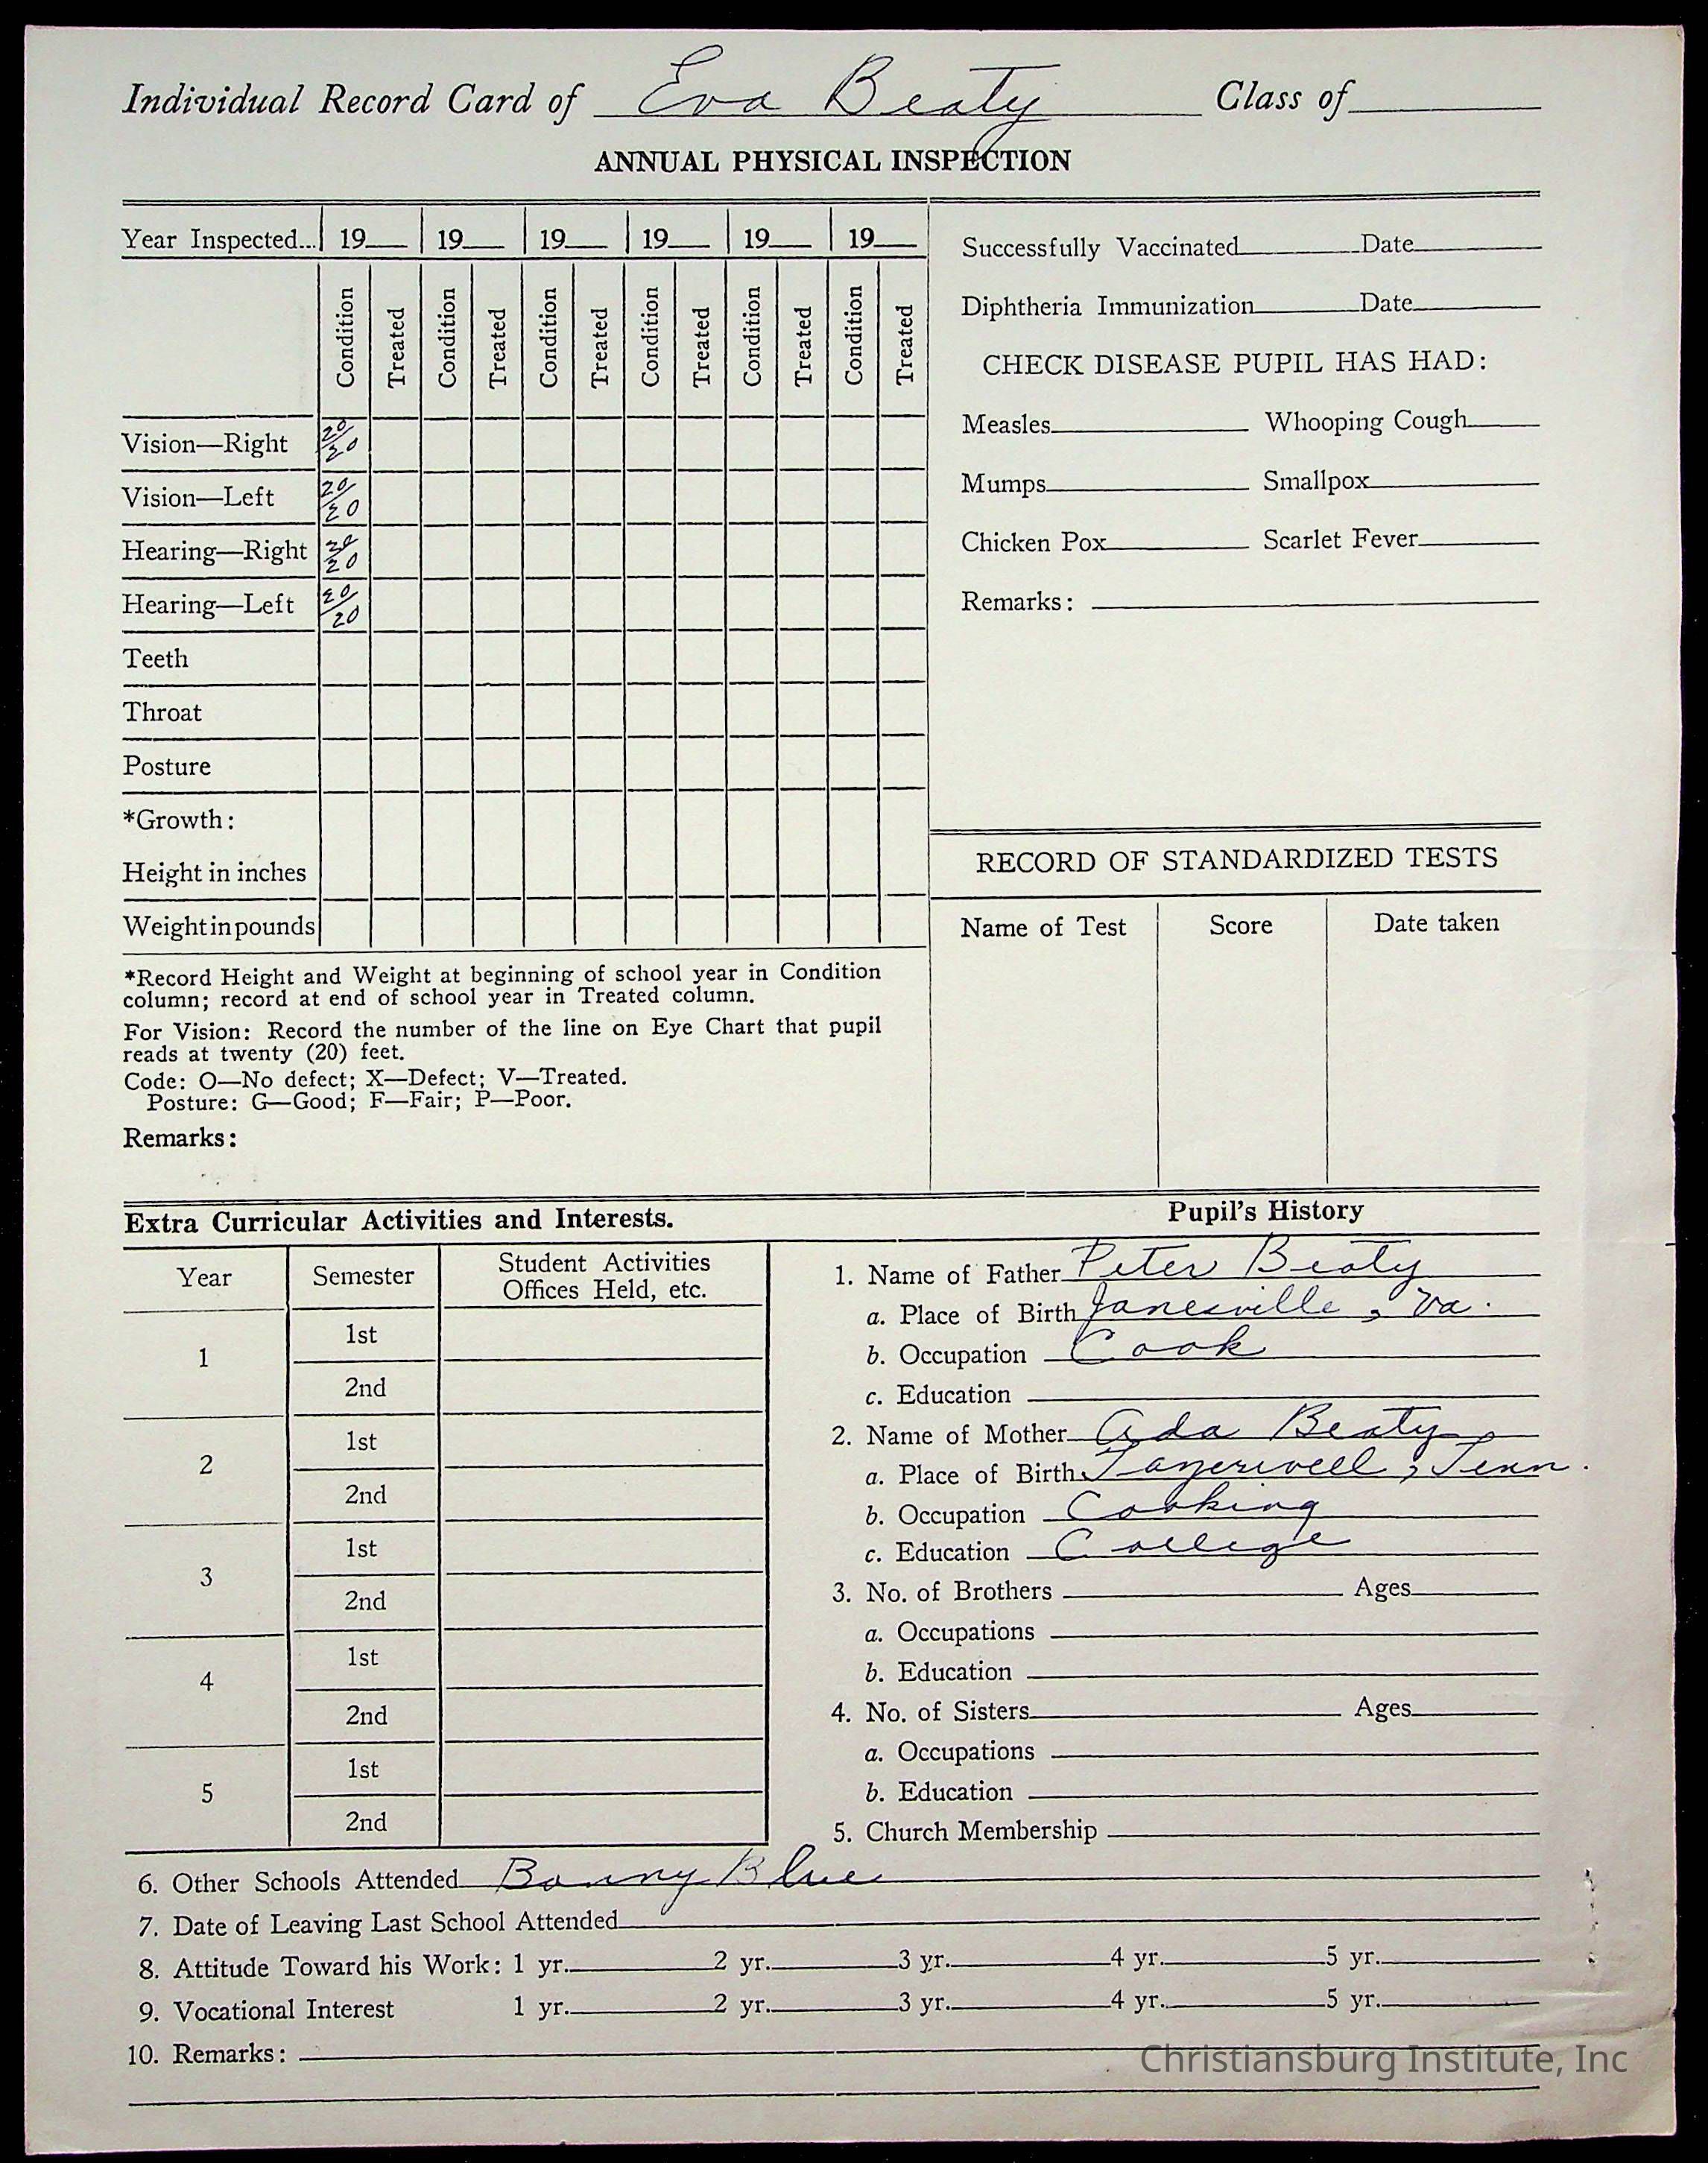 Individual Record Card of Eva Beaty Class of
ANNUAL PHYSICAL INSPECTION
Year Inspected... 19 19 19 19 19 19
Condition Treated Condition Treated Condition Treated Condition Treated Condition Treated Condition Treated
Vision—Right 20/20
Vision—Left 20/20
Hearing—Right 20/20
Hearing—Left 20/20
Teeth
Throat
Posture
*Growth:
Height in inches
Weight in pounds
*Record Height and Weight at beginning of school year in Condition
column; record at end of school year in Treated column.
For Vision: Record the number of the line on Eye Chart that pupil
reads at twenty (20) feet.
Code: O—No defect; X—Defect; V—Treated.
Posture: G—Good; F—Fair; P—Poor.
Remarks:
Successfully Vaccinated Date
Diphtheria Immunization Date
CHECK DISEASE PUPIL HAS HAD:
Measles Whooping Cough
Mumps Smallpox
Chicken Pox Scarlet Fever
Remarks:
RECORD OF STANDARDIZED TESTS
Name of Test Score Date taken
Extra Curricular Activities and Interests.
Year Semester Student Activities
Offices Held, etc.
1 1st
2nd
2 1st
2nd
3 1st
2nd
4 1st
2nd
5 1st
2nd
Pupil's History
1. Name of Father Peter Beaty
a. Place of Birth Janesville, Va.
b. Occupation Cook
c. Education
2. Name of Mother Ada Beaty
a. Place of Birth Tenn.
b. Occupation Cooking
c. Education College
3. No. of Brothers Ages
a. Occupations
b. Education
4. No. of Sisters Ages
a. Occupations
b. Education
5. Church Membership
6. Other Schools Attended Bonny Blue
7. Date of Leaving Last School Attended
8. Attitude Toward his Work: 1 yr. 2 yr. 3 yr. 4 yr. 5 yr.
9. Vocational Interest 1 yr. 2 yr. 3 yr. 4 yr. 5 yr.
10. Remarks:
Christiansburg Institute, Inc